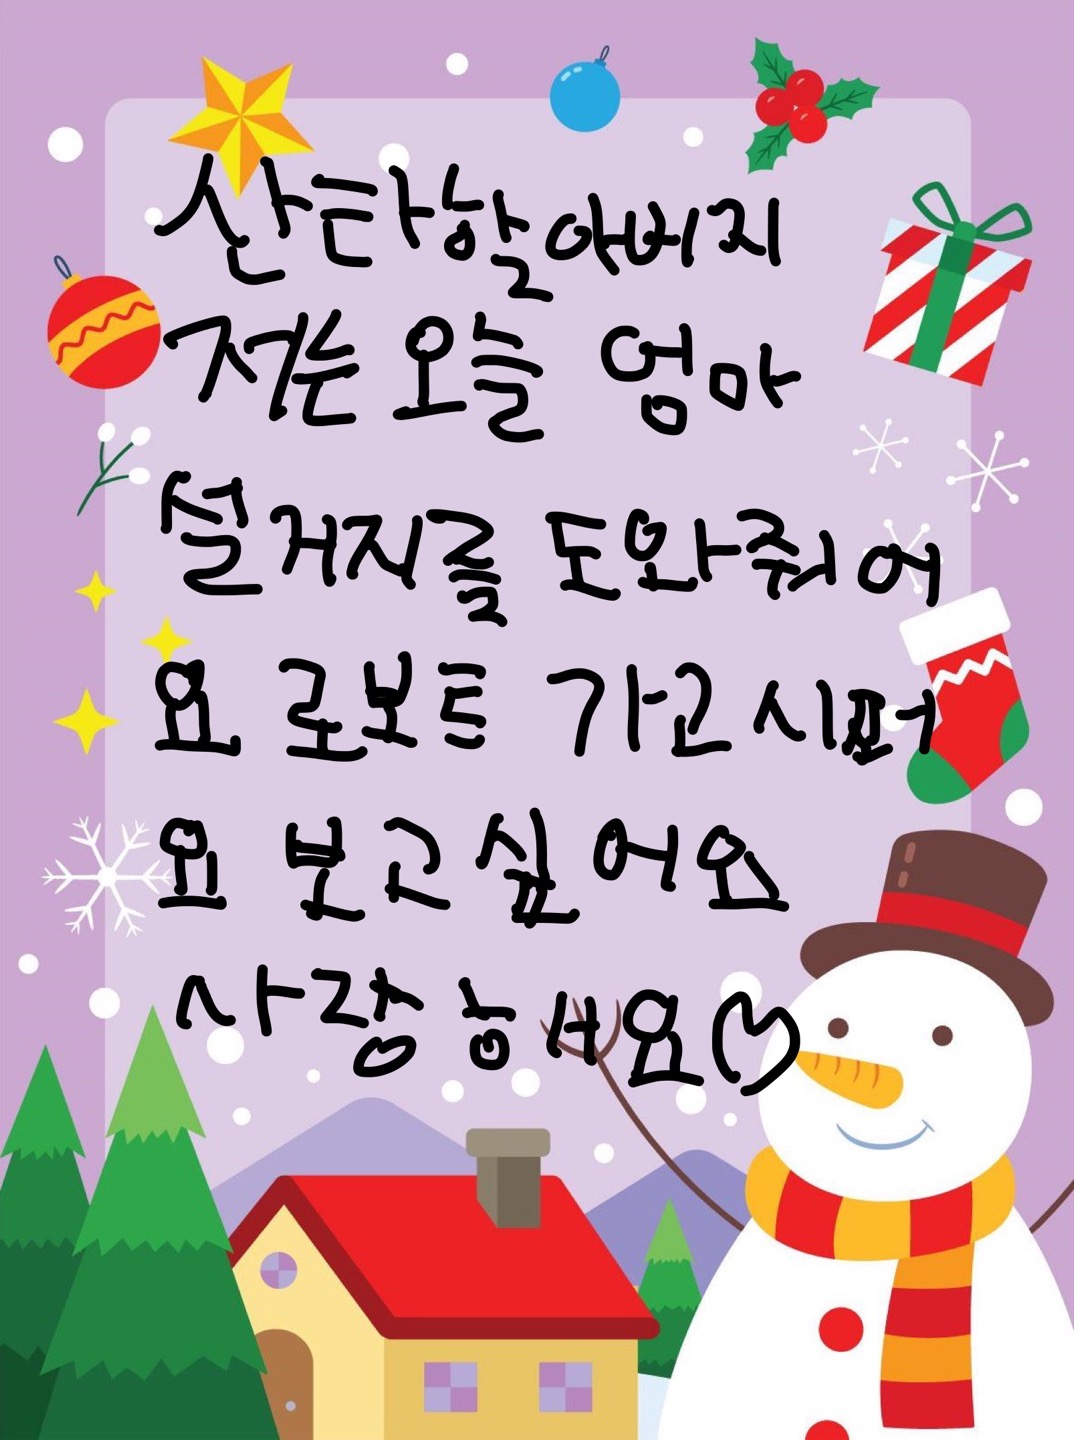 산타할아버지
저는 오늘 엄마
설거지를 도와줘어
요 로보트 가고시퍼
요 보고싶어요
사랑해요♡